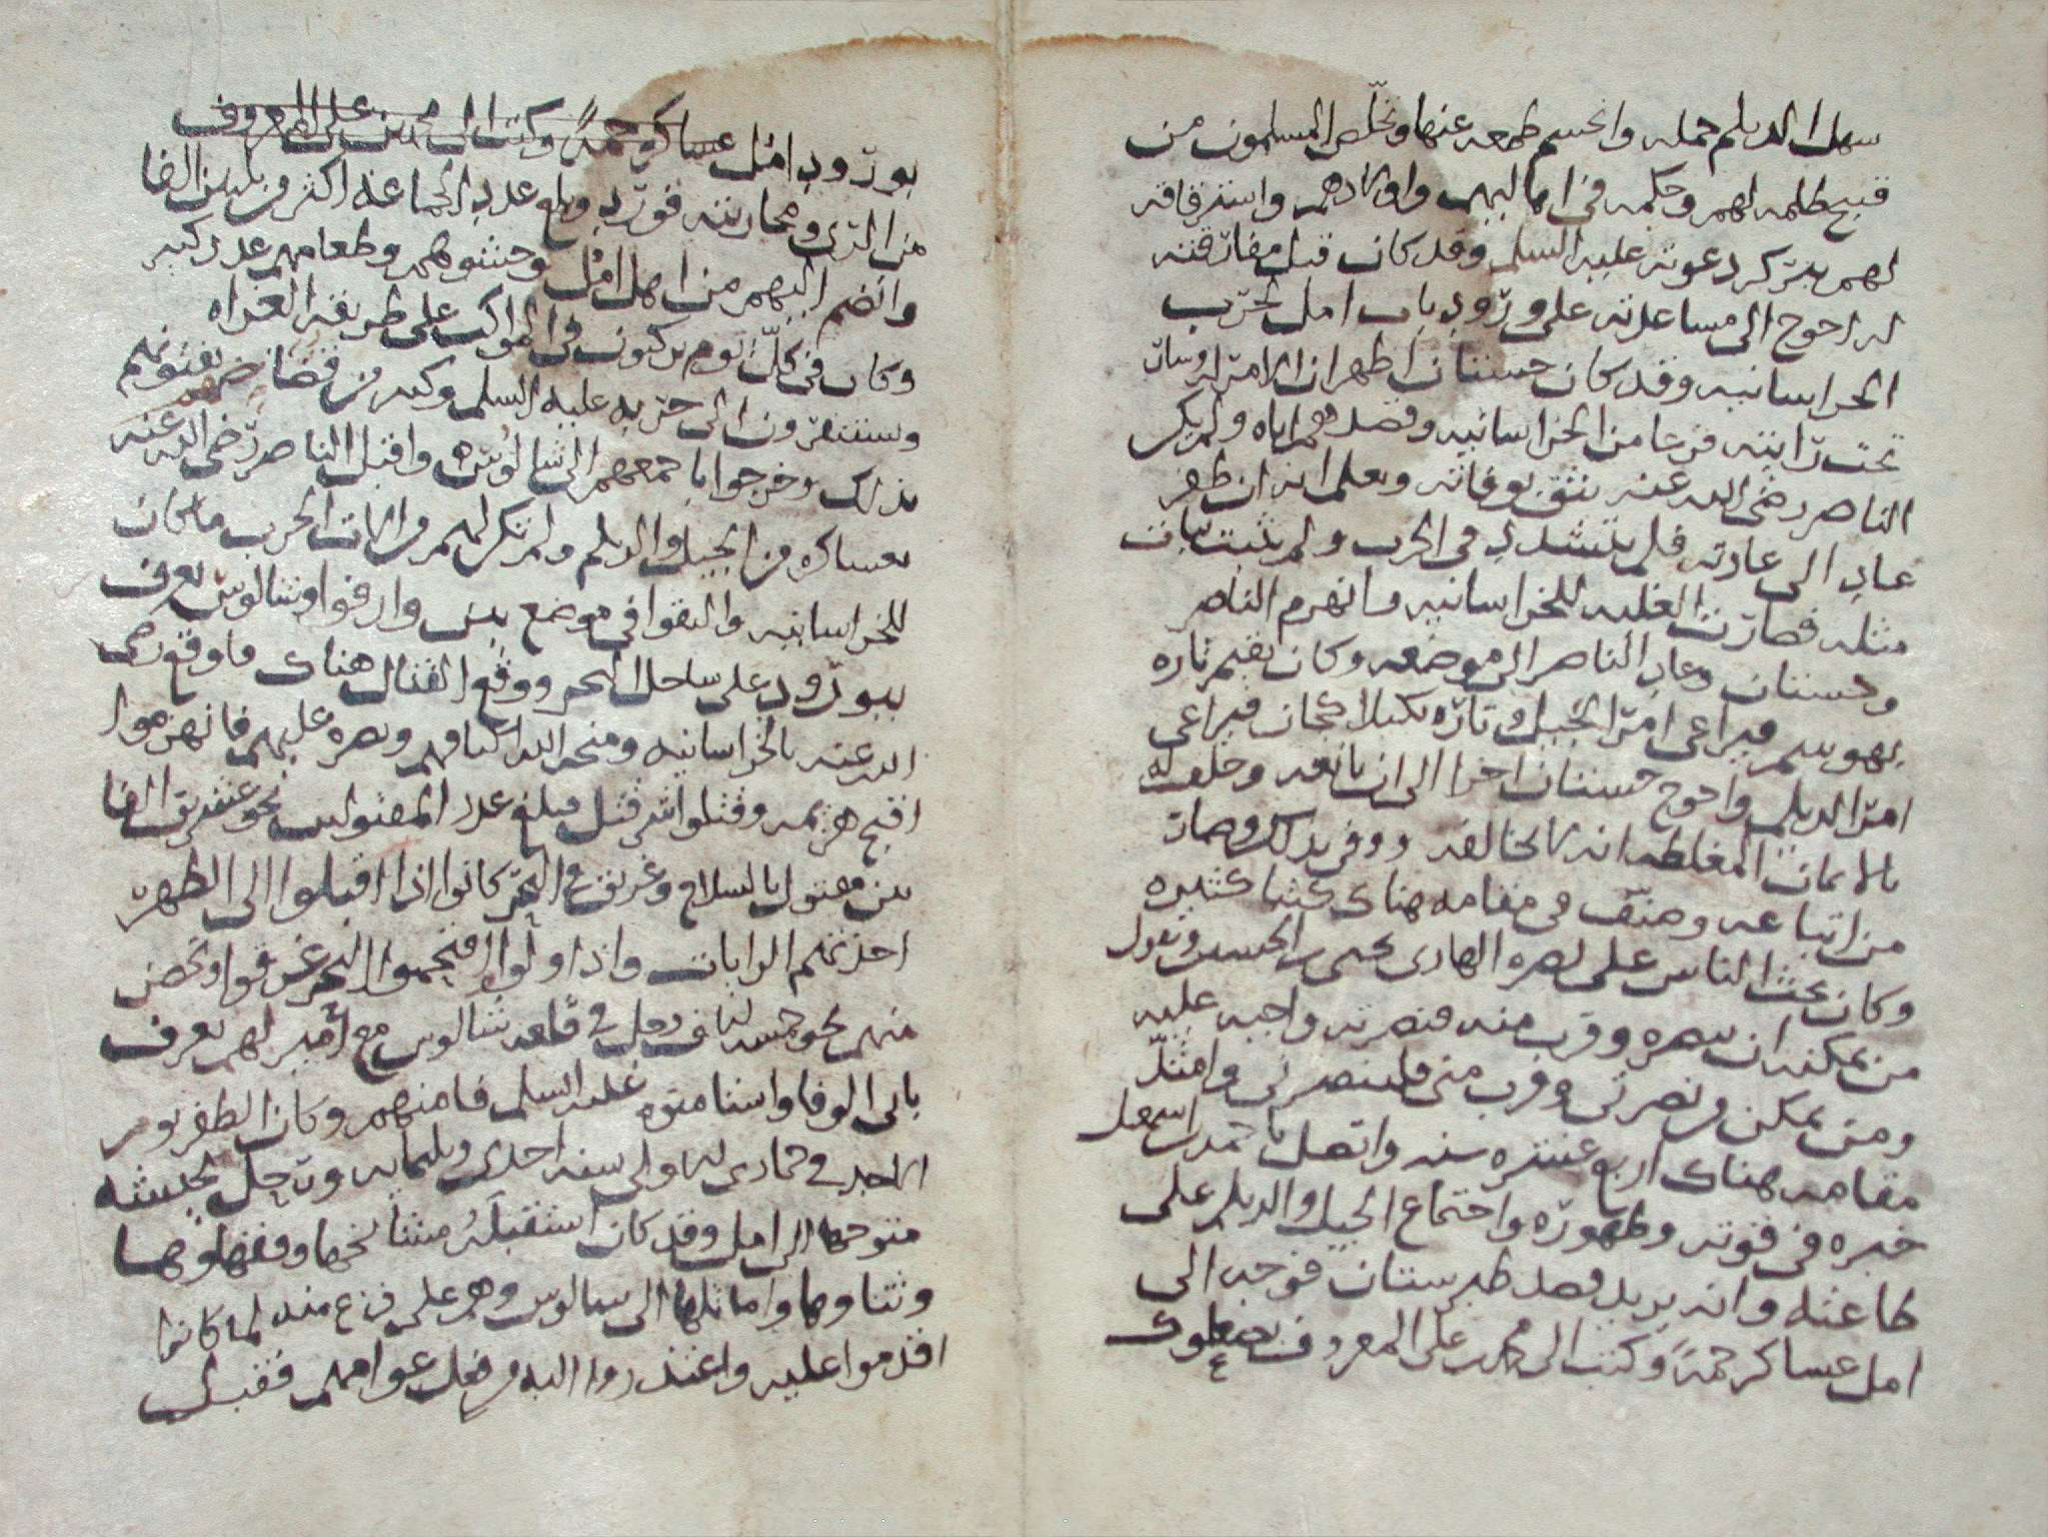 سهل الديلم جمله وانحسم طمعه عنها وتخلّص المسلمون من
قبيح ظلمه لهم وحكمه في اماليهم واولادهم واسترقاقه
لهم بتركه دعوته عليه السلم وقد كان قبل مفارقته
له احوج الى مساعدته على ورود باب امل لحرب
الخراسانيه وقد كان حسنان اظهر ان الامر له وسار
تحت رايته فزعا من الخراسانيه وقصدهم اياه ولم يكن
الناصر رضى الله عنه يثق بوفائه ويعلم انه ان ظفر
عاد الى عادته فلم يتشدد في الحرب ولم يثبت ثبات
مثله فصارت الغلبه للخراسانيه وانهزم الناصر
وحسنان وعاد الناصر الى موضعه وكان يقيم تاره
بهوسم فيراعى امر الجيل وتاره بكيلاكجان فيراعى
امر الديلم واحوج حسنان اخرا الى ان بايعه وحلف له
بالايمان المغلظه انه لا يخالفه ووفى بذلك وصار
من اتباعه وصنّف في مقامه هناك كتبا كثيره
وكان يحث الناس على نصره الهادى يحيى بن الحسين ويقول
من يمكنه ان ينصره وقرب منه فنصرته واجبه عليه
ومن يمكن من نصرتى وقرب منى فلينصرنى وامتدّ
مقامه هناك اربع عشره سنه واتصل باحمد بن اسمعيل
خبره في قوته وظهوره واجتماع الجيل والديلم على
طاعته وانه يريد قصد طبرستان فوجه الى
امل عساكر جمةً وكتب الى محمد بن على المعروف بصعلوك
بورود امل عساكر جمةً وكتب الى محمد بن على المعروف
من الرى ومحاربته فورد وبلغ عدد الجماعه اكثر من ثلثين الفا
وانضم اليهم من اهل امل وحشوهم وطغامهم عدد كبير
وكان في كلّ يوم يركبون في المواكب على طريقه الغزاه
ويستنفرون الى حربه عليه السلم وكبير من قضاتهم يفتونهم
بذلك وخرجوا باجمعهم الى شالوس واقبل الناصر رضى الله عنه
بعساكره من الجيل والديلم ولم تكن لهم من الات الحرب ما كان
للخراسانيه والتقوا في موضع بين وارفوا وشالوس يعرف
ببورود على ساحل البحر ووقع القتال هناك ما وقع رضى
الله عنه بالخراسانيه ومنحه الله اكتافهم ونصره عليهم فانهزموا
اقبح هزيمه وقتلوا شر قتل مبلغ عدد المقتولين نحو عشرين الفا
بين مقتول بالسلاح وغريق في البحر كانوا اذا اقبلوا الى الظهره
اخذتهم الرايات واذا ولوا اقتحموا البحر غرقوا وتحصن
منهم نحو خمسه الاف رجل في قلعه شالوس مع امير لهم يعرف
بابى الوفا واستامنوه عليه السلم فامنهم وكان الظفر يوم
الاحد في جمادى الاولى سنه احدى وثلثمايه ورحل بجيشه
متوجها الى امل وقد كان استقبله مشائخها وفقهاوها
وتناوها واماثلها الى سالوس وهم على فزع منه لما كانوا
اقدموا عليه واعتذروا اليه من فعل عوامهم فقبل